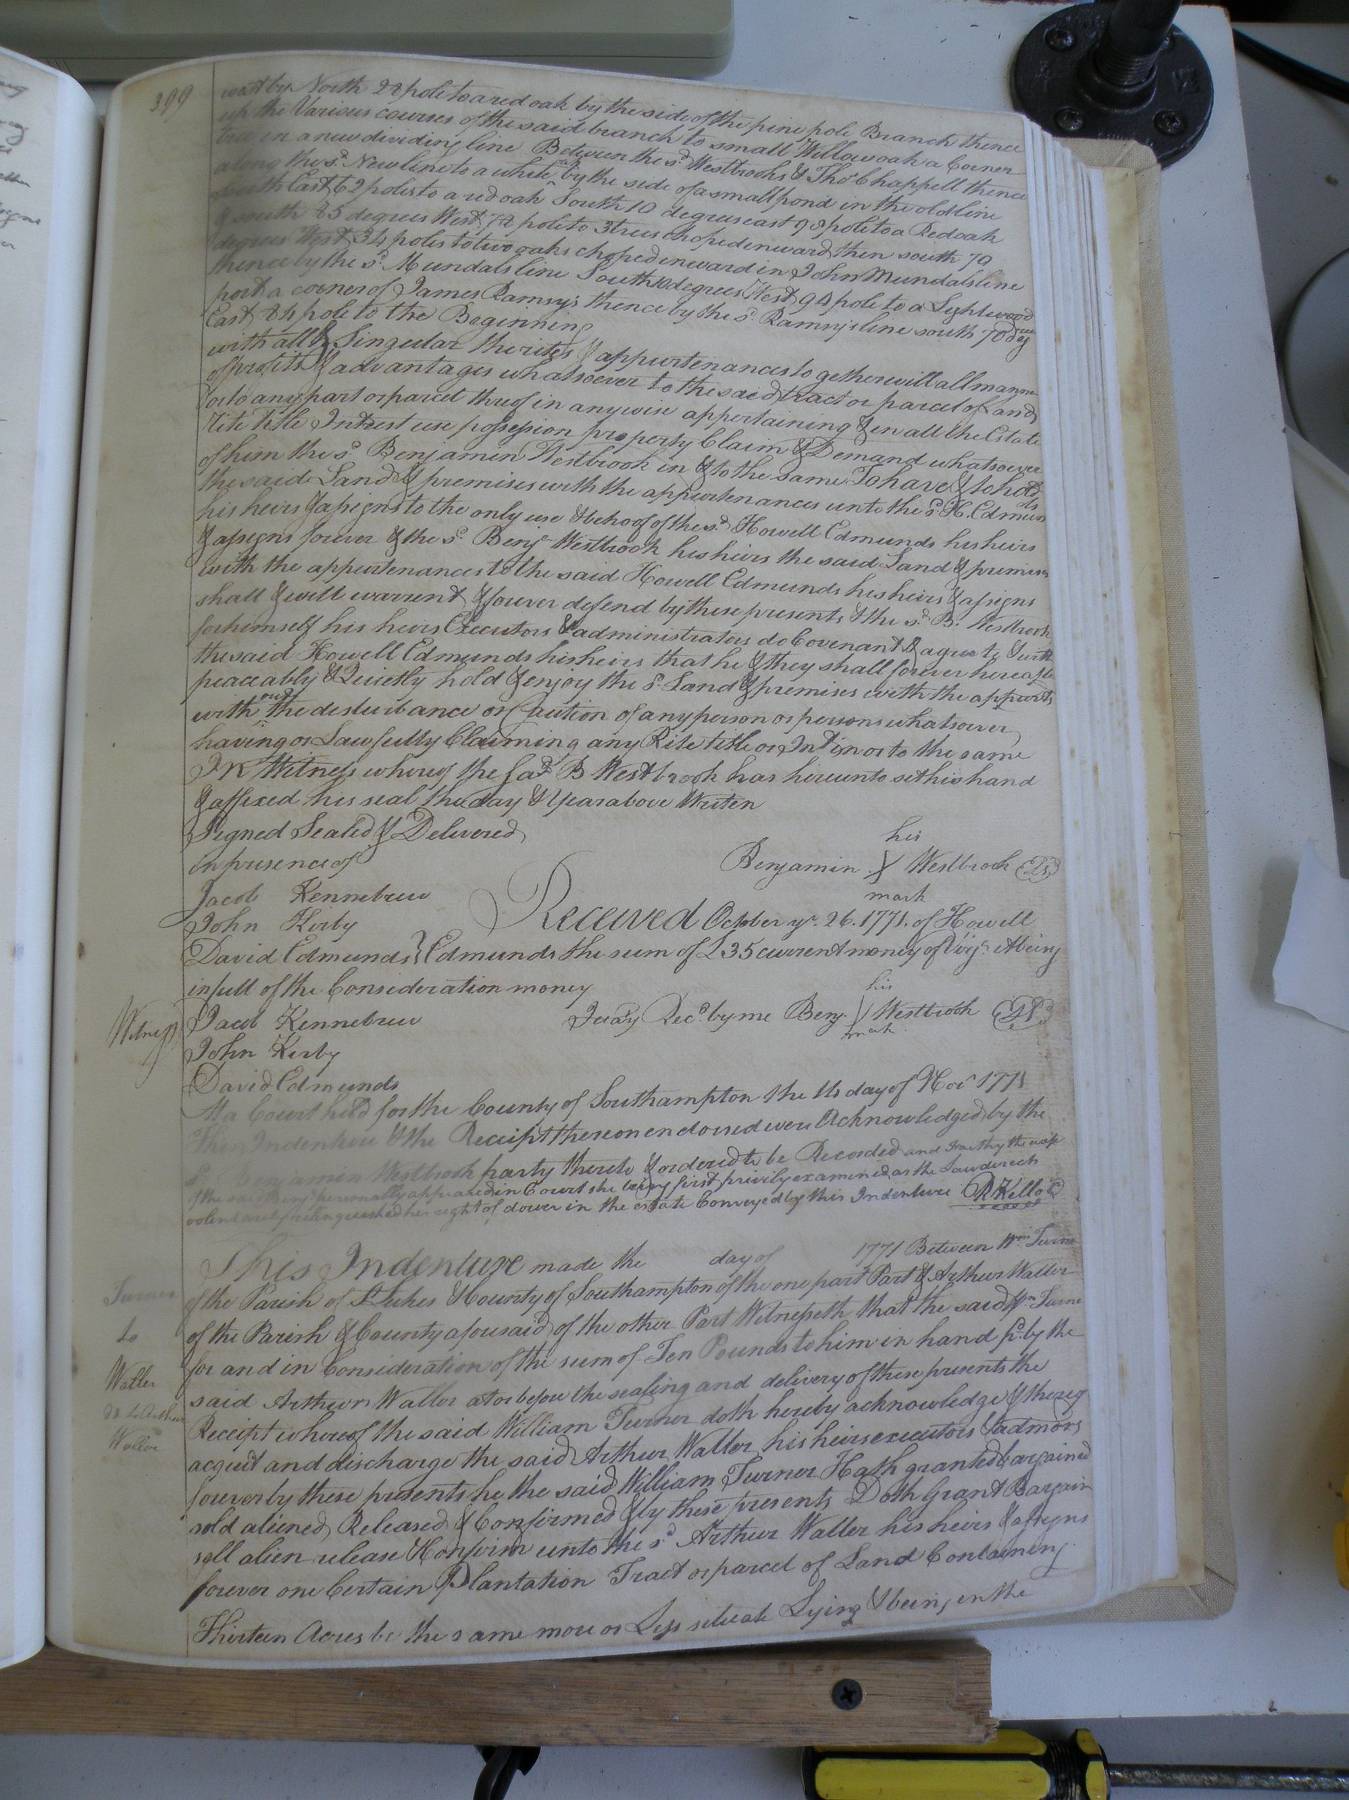 399
west by North 22 pole to a red oak by the side of the pine pole Branch thence
up the Various courses of the said branch to small Willow oak a Corner
tree in a new dividing line Between the sd Westbrooks & Thos Chappell thence
along the sd New line to a white oak by the side of a small pond in the old line
South East 62 poles to a red oak South 10 degrees east 98 pole to a Red oak
& south 25 degrees West 72 pole to 3 trees choped enward then south 79
degrees West 34 poles to two oaks choped enward in John Mundals line
thence by the sd Mundals line South degrees West 94 pole to a Lightwood
post a corner of James Ramsy's thence by the sd Ramsy's line south 70 dgs
East 24 pole to the Beginning
with all & Singular the rites & appurtenances together will all manner
of profits & advantages whatsoever to the said tract or parcel of Land
or to any part or parcel threof in anywise appertaining & en all the Estate
rite title Intrest use possession property Claim & Demand whatsoever
of him the sd Benjamin Westbrook in & to the same To have & to hold
the said Land & premises with the appurtenances unto the sd H. Edmunds
his heirs & asigns to the only use & behoof of the sd Howell Edmunds his heirs
& asigns forever & the sd Benj Westbrook his heirs the said Land & premises
with the appurtenances to the said Howell Edmunds his heirs & asigns
shall & will warrent & forever defend by these presents & the sd B. Westbrook
for himself his heirs Executors & administrators do Covenant & agree to & with
the said Howell Edmunds his heirs that he & they shall forever hereafter
peaceably & Quietly hold & enjoy the sd Land & premises with the appurts
with out the desturbance or Caution of any person or persons whatsover
having or Lawfully Claiming any Rite title or Int in or to the same
In Witness whereof the sad B Westbrook has hereunto set his hand
& affixed his seal the day & Year above Writen
Signed Sealed & Delivered
in presence of
his
Benjamin Westbrook
mark
Jacob Kennebrew
John Kirby
David Edmunds
Received October ye 26. 1771. of Howell
Edmunds the sum of £35 current money of Virga it being
in full of the Consideration money
his
Witness Jacob Kennebrew
I say Recd by me Benj Westbrook
mark
John Kirby
David Edmunds
At a Court held for the County of Southampton the 14 day of Nov 1771
This Indenture & the Receipt thereon endorsed were Acknowledged by the
sd Benjamin Westbrook party thereto & ordered to be Recorded and Dorothy the wife
of the said Benj personally appeared in Court she being first privily examined as the Law directs
volentarily relinquished her right of dower in the estate Conveyed by this Indenture R Kello C
This Indenture made the day of 1771 Between Wm Turner
of the Parish of St Lukes & County of Southampton of the one part Part & Arthur Waller
of the Parish & County aforesaid of the other Part Witnesseth that the said Wm Turner
for and in Consideration of the sum of Ten Pounds to him in hand pd by the
said Arthur Waller at or before the sealing and delivery of these presents the
Receipt whereof the said William Turner doth hereby acknowledge & thereof
acquit and discharge the said Arthur Waller his heirs executors & admors
forever by these presents he the said William Turner Hath granted bargained
sold aliened Released & Confirmed & by these presents Doth Grant Bargain
sell alien release & Confirm unto the sd Arthur Waller his heirs & assigns
forever one Certain Plantation Tract or parcel of Land Containing
Thirteen Acres be the same more or Less situate Lying & being in the
Turner
to
Waller